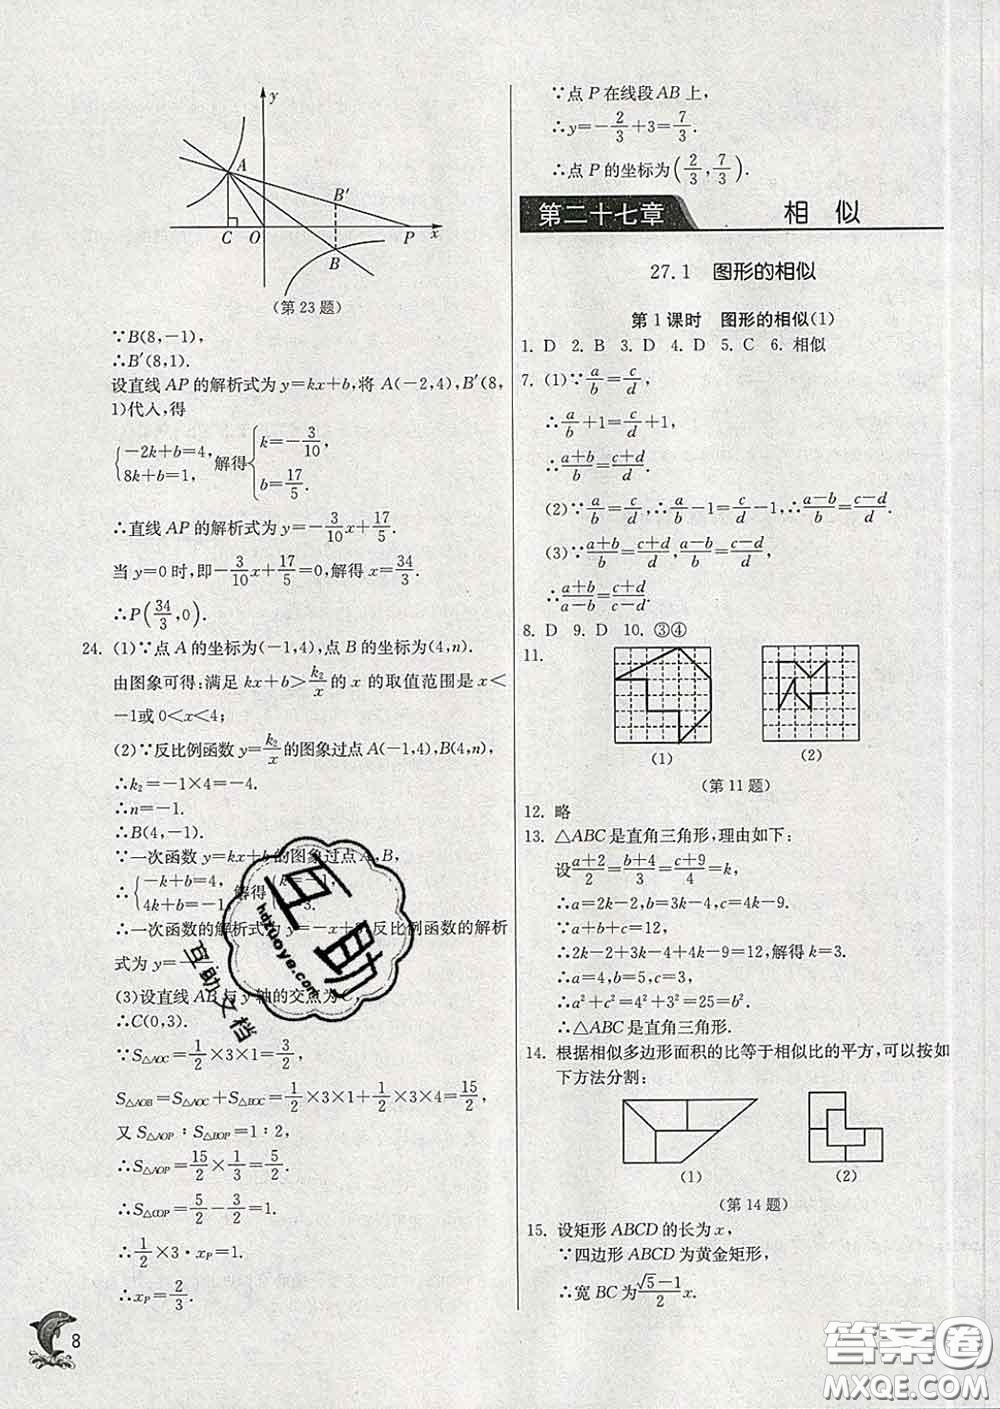 y
A
B′
C
O
B
P
x
(第23题)
∵B(8,−1),
∴B′(8,1).
设直线 AP 的解析式为 y=kx+b,将 A(−2,4),B′(8,
1)代入,得
{−2k+b=4, 8k+b=1, 解得 {k=−3/10, b=17/5.
∴直线 AP 的解析式为 y=−3/10x+17/5.
当 y=0 时,即−3/10x+17/5=0,解得 x=34/3.
∴P(34/3,0).
24. (1)∵点 A 的坐标为(−1,4),点 B 的坐标为(4,n).
由图象可得:满足 kx+b>k₂/x 的 x 的取值范围是 x<
−1或 0<x<4;
(2)∵反比例函数 y=k₂/x 的图象过点 A(−1,4),B(4,n),
∴k₂=−1×4=−4.
∴n=−1.
∴B(4,−1).
∵一次函数 y=kx+b 的图象过点 A,B,
∴{−k+b=4, 4k+b=−1, 解得 {k=−1,
∴一次函数的解析式 y=−x+ 反比例函数的解析
式为 y=−
(3)设直线 AB 与 y 轴的交点为 C,
∴C(0,3).
∵S△AOC=1/2×3×1=3/2,
S△AOB=S△AOC+S△BOC=1/2×3×1+1/2×3×4=15/2,
又 S△AOP∶S△BOP=1∶2,
∴S△AOP=15/2×1/3=5/2.
∴S△COP=5/2−3/2=1.
∴1/2×3·xP=1.
∴xP=2/3.
8
∵点 P 在线段 AB 上,
∴y=−2/3+3=7/3.
∴点 P 的坐标为(2/3,7/3).
第二十七章 相 似
27.1 图形的相似
第1课时 图形的相似(1)
1. D 2. B 3. D 4. D 5. C 6. 相似
7. (1)∵a/b=c/d,
∴a/b+1=c/d+1,
∴(a+b)/b=(c+d)/d.
(2)∵a/b=c/d,∴a/b−1=c/d−1,∴(a−b)/b=(c−d)/d.
(3)∵(a+b)/b=(c+d)/d,(a−b)/b=(c−d)/d,
∴(a+b)/(a−b)=(c+d)/(c−d).
8. D 9. D 10. ③④
11.
(1)
(2)
(第11题)
12. 略
13. △ABC 是直角三角形,理由如下:
设(a+2)/2=(b+4)/3=(c+9)/4=k,
∴a=2k−2,b=3k−4,c=4k−9.
∵a+b+c=12,
∴2k−2+3k−4+4k−9=12,解得 k=3.
∴a=4,b=5,c=3.
∴a²+c²=4²+3²=25=b².
∴△ABC 是直角三角形.
14. 根据相似多边形面积的比等于相似比的平方,可以按如
下方法分割:
(1)
(2)
(第14题)
15. 设矩形 ABCD 的长为 x,
∵四边形 ABCD 为黄金矩形,
∴宽 BC 为(√5−1)/2 x.
互助
hdzuoye.com
互助文档
答案圈
MXQE.COM